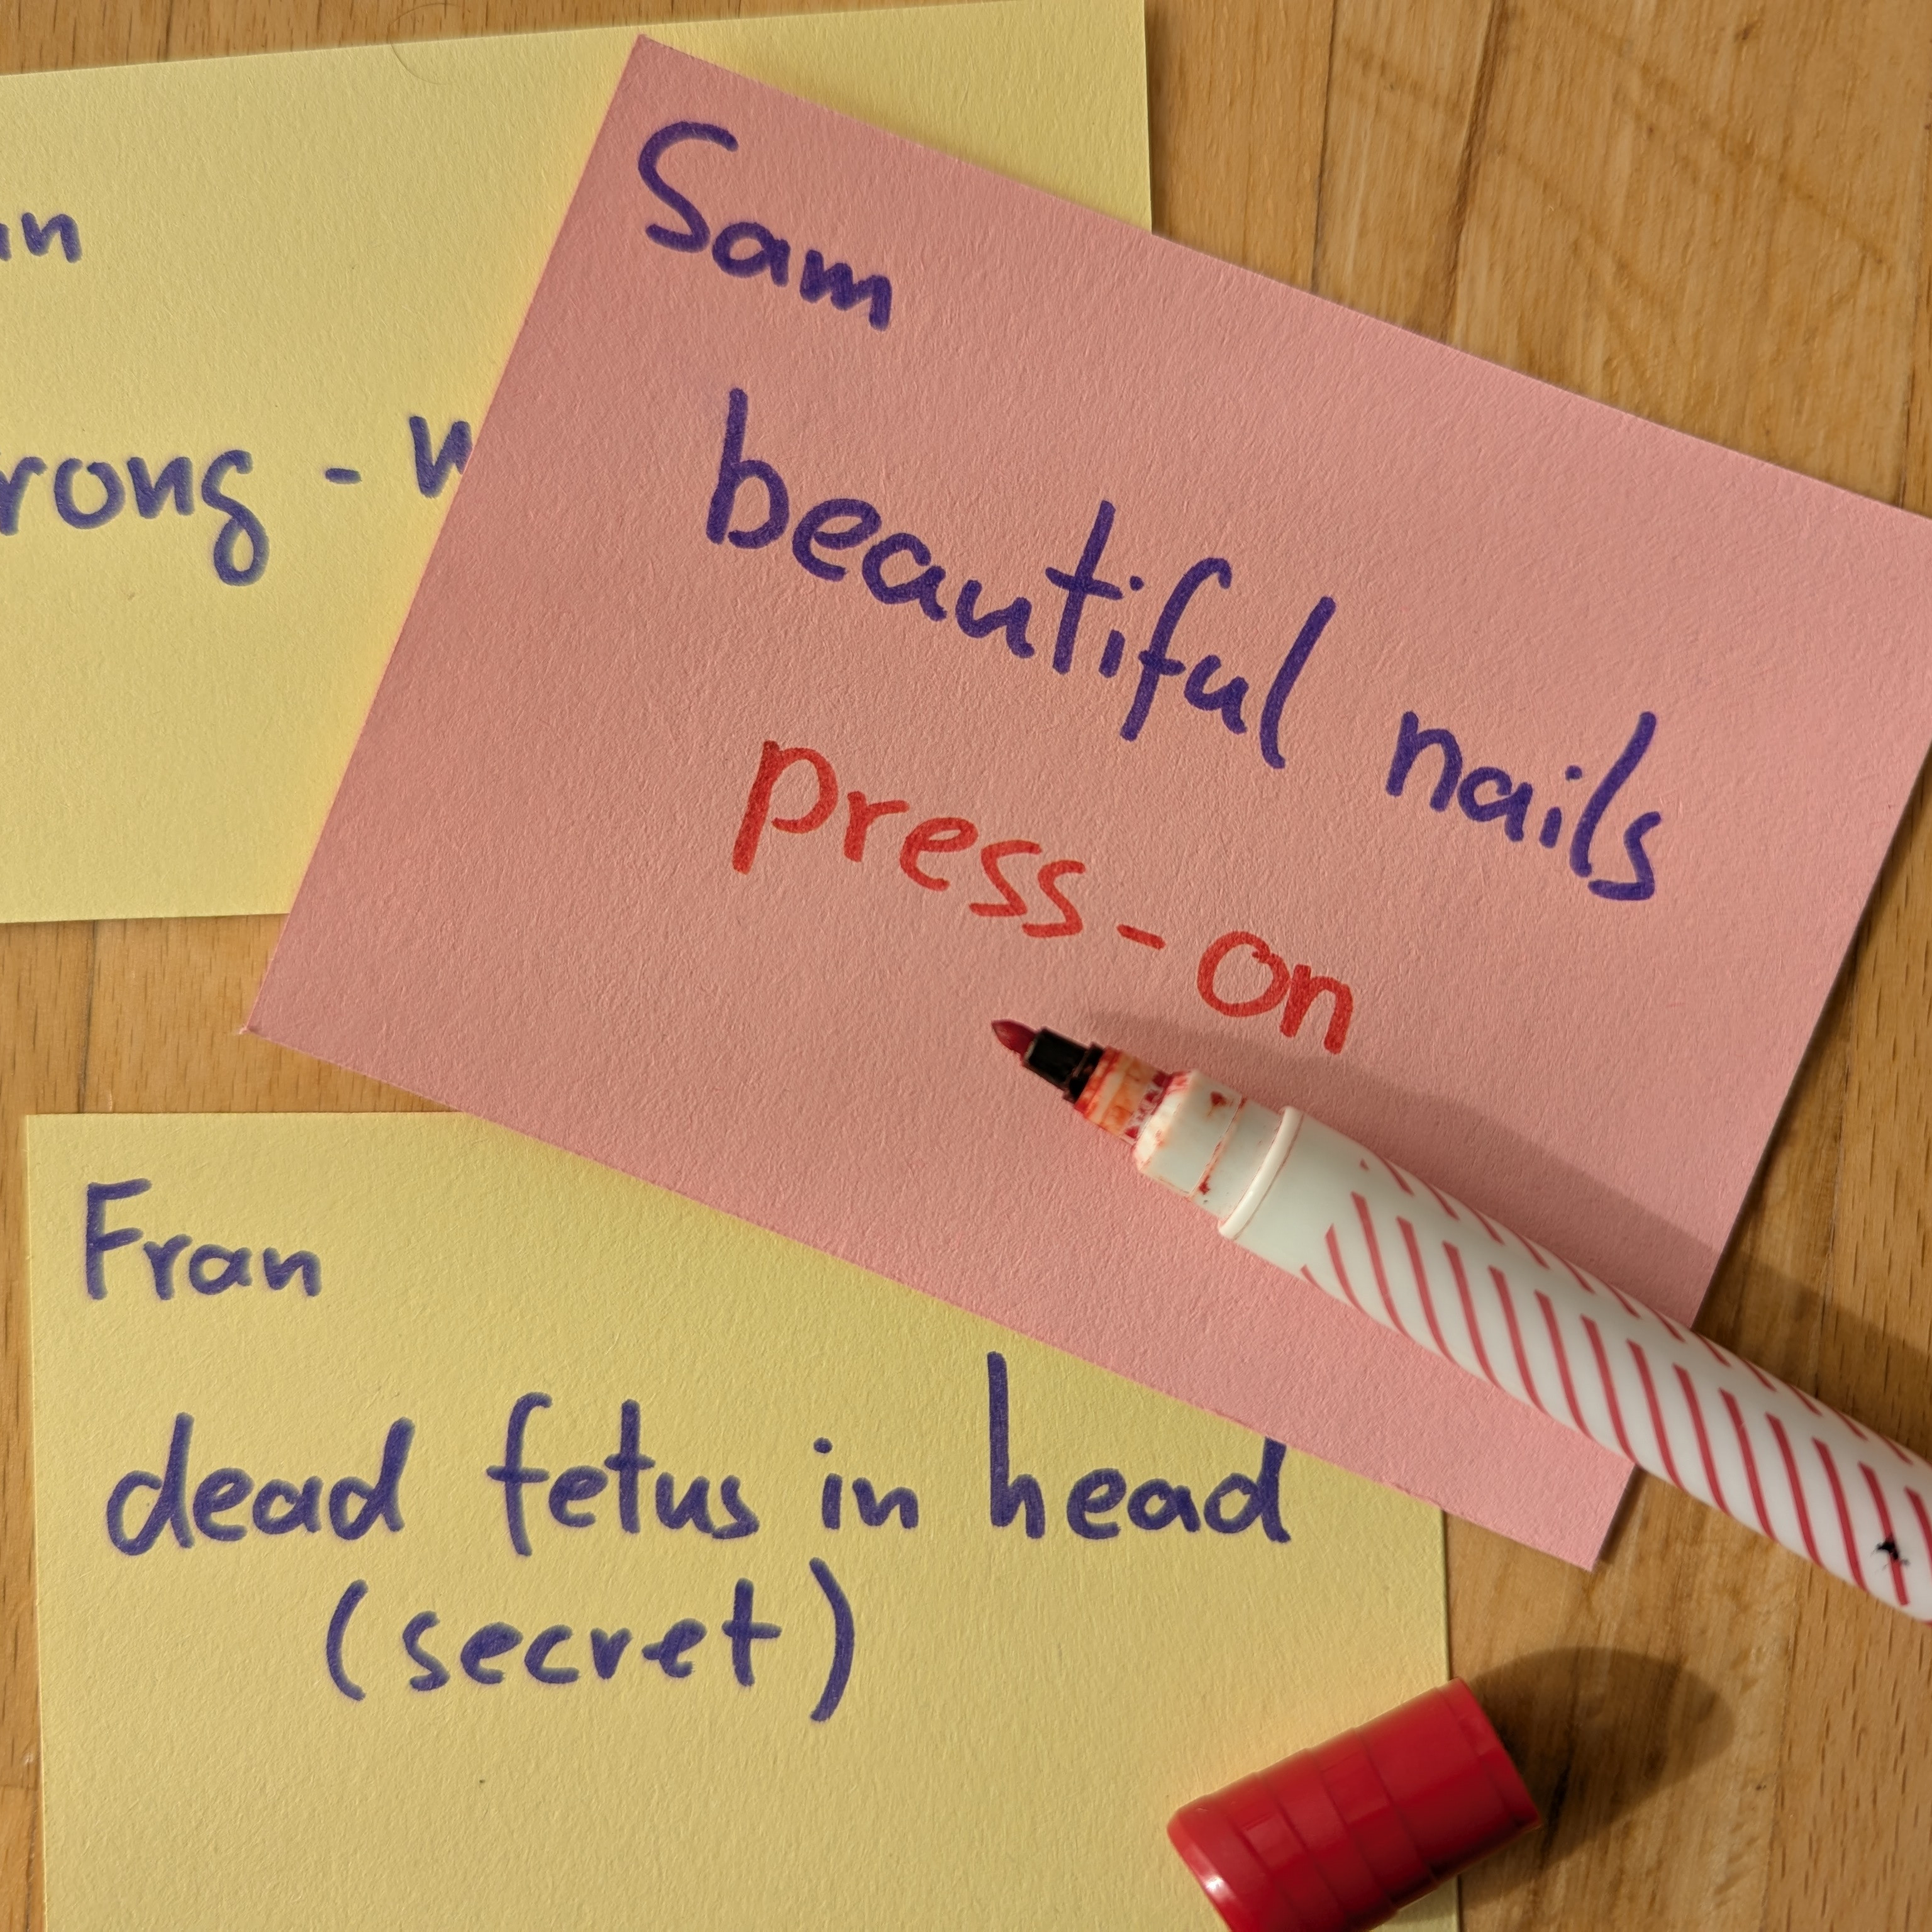 Sam
beautiful nails
press-on
Fran
dead fetus in head
(secret)